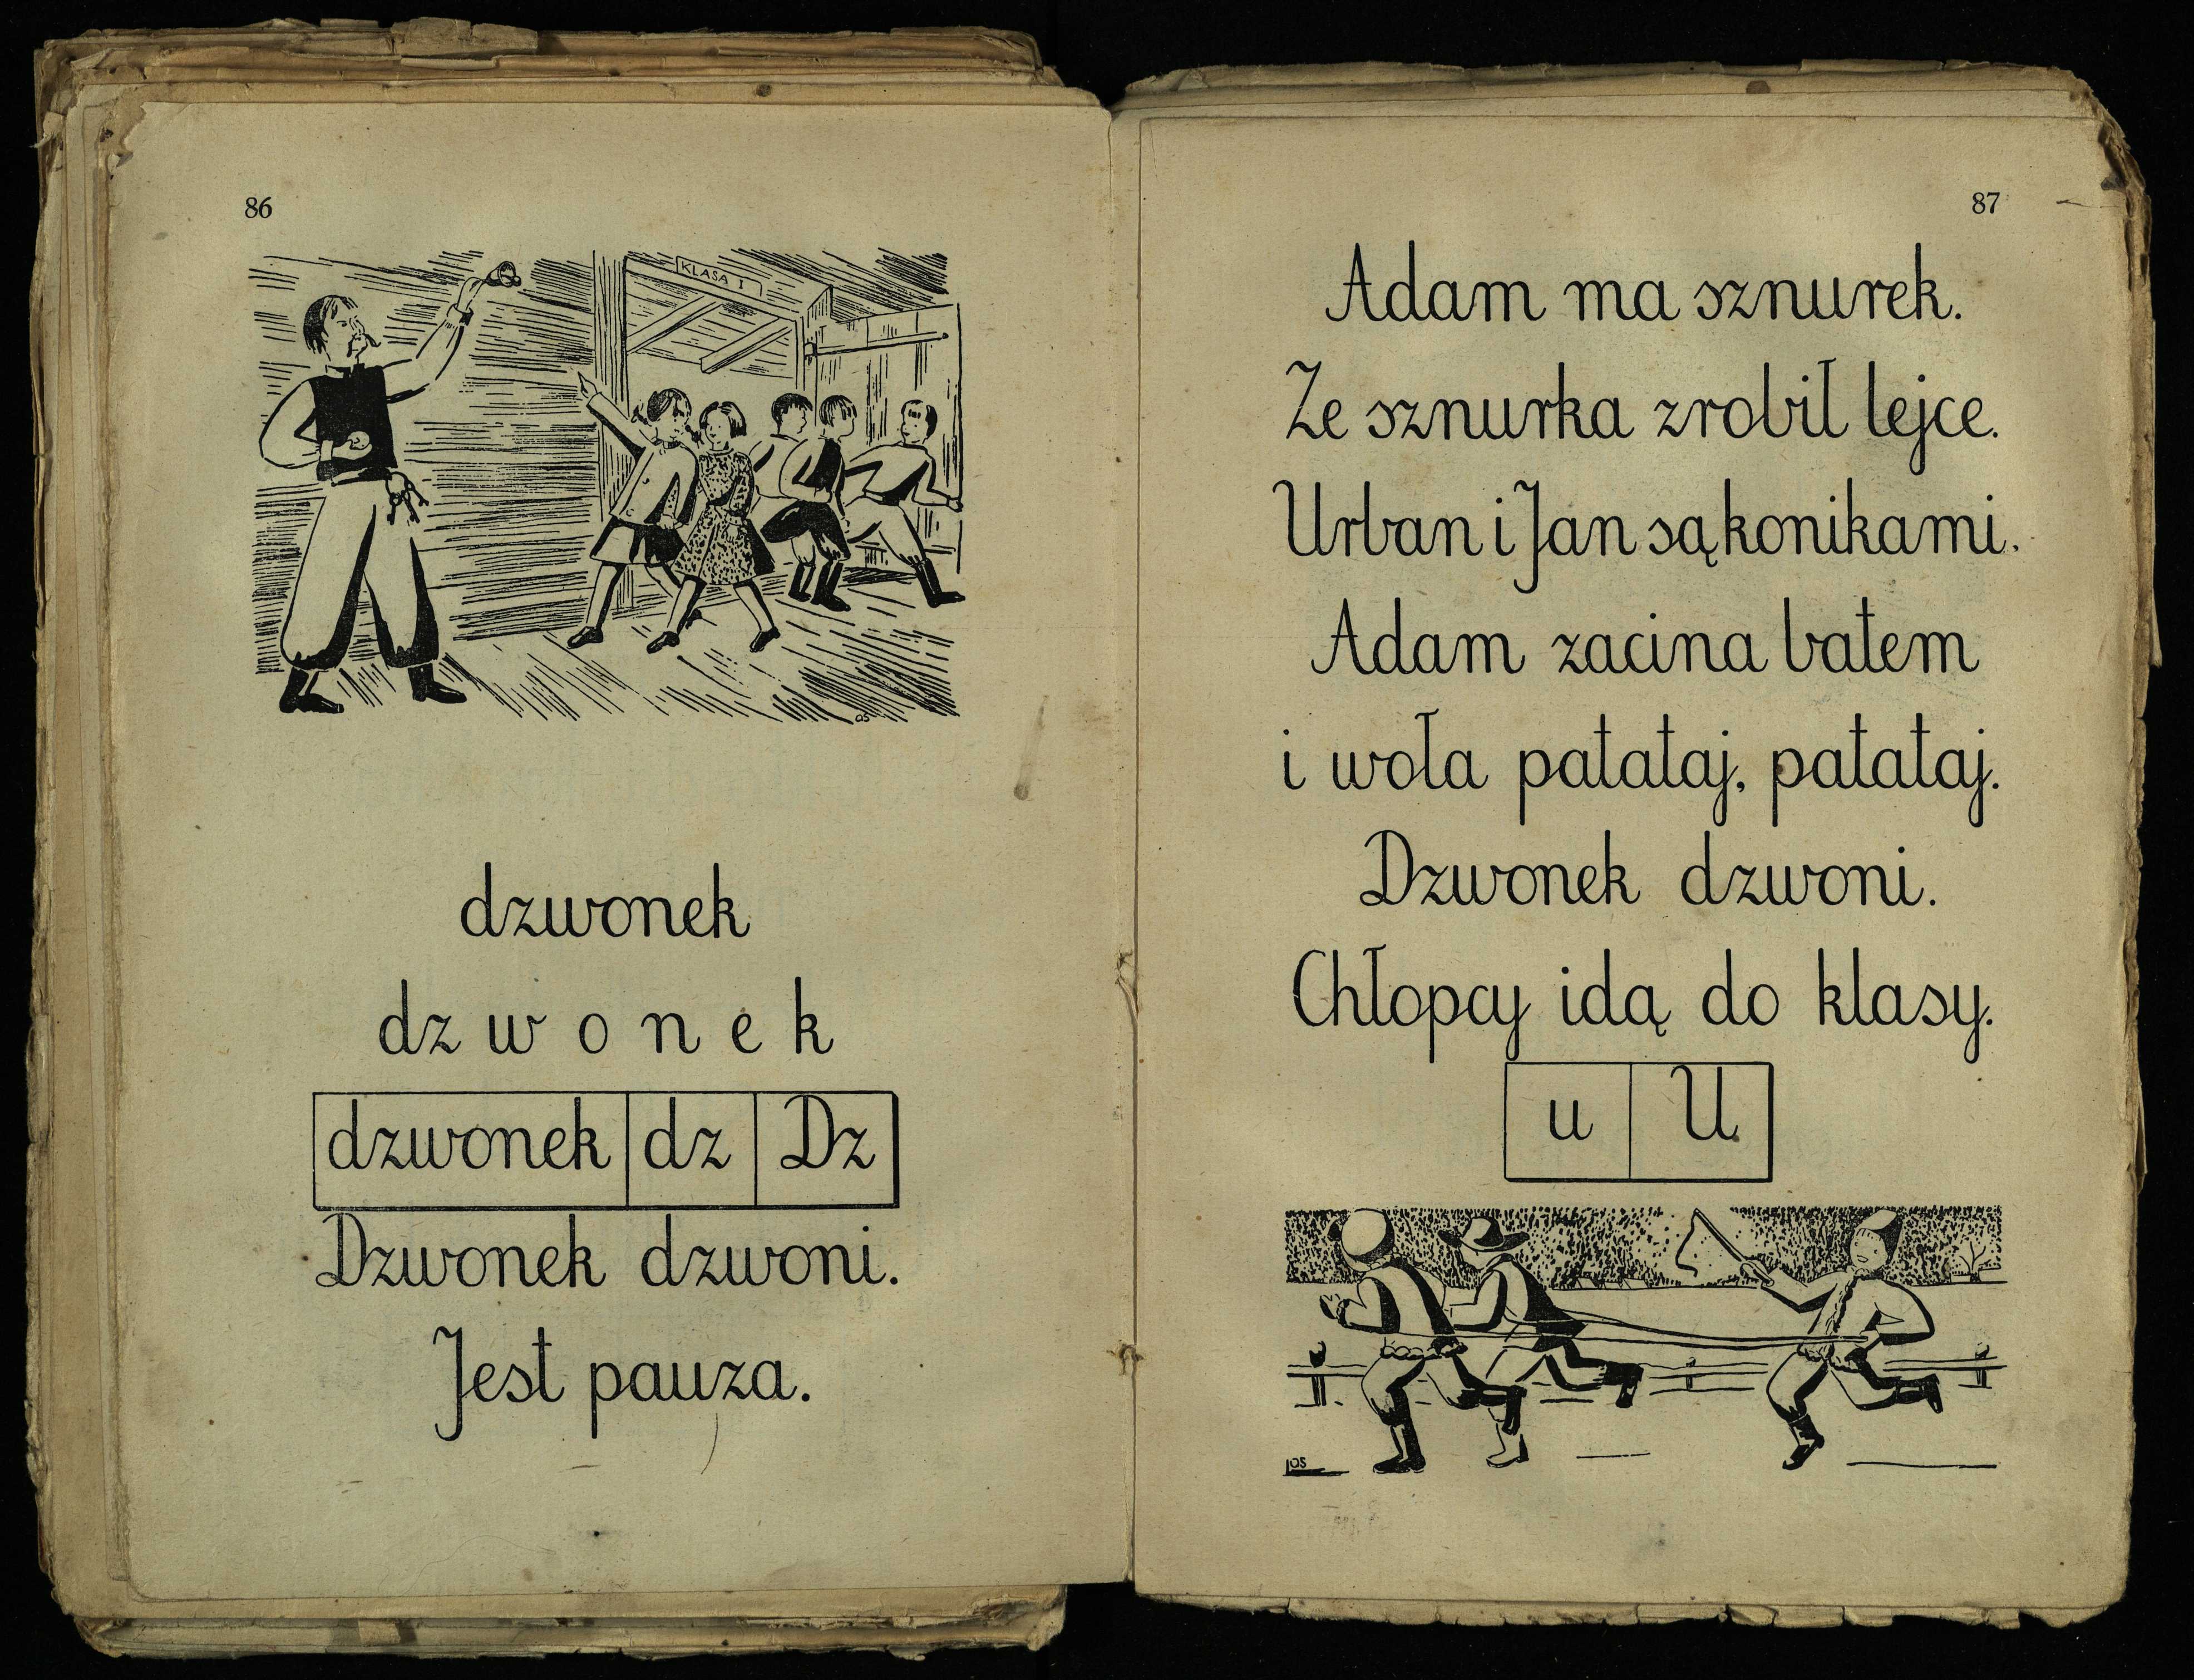 86
KLASA I
dzwonek
dz w o n e k
dzwonek dz Dz
Dzwonek dzwoni.
Jest pauza.
87
Adam ma sznurek.
Ze sznurka zrobił lejce.
Urban i Jan są konikami.
Adam zacina batem
i woła patataj, patataj.
Dzwonek dzwoni.
Chłopcy idą do klasy.
u U